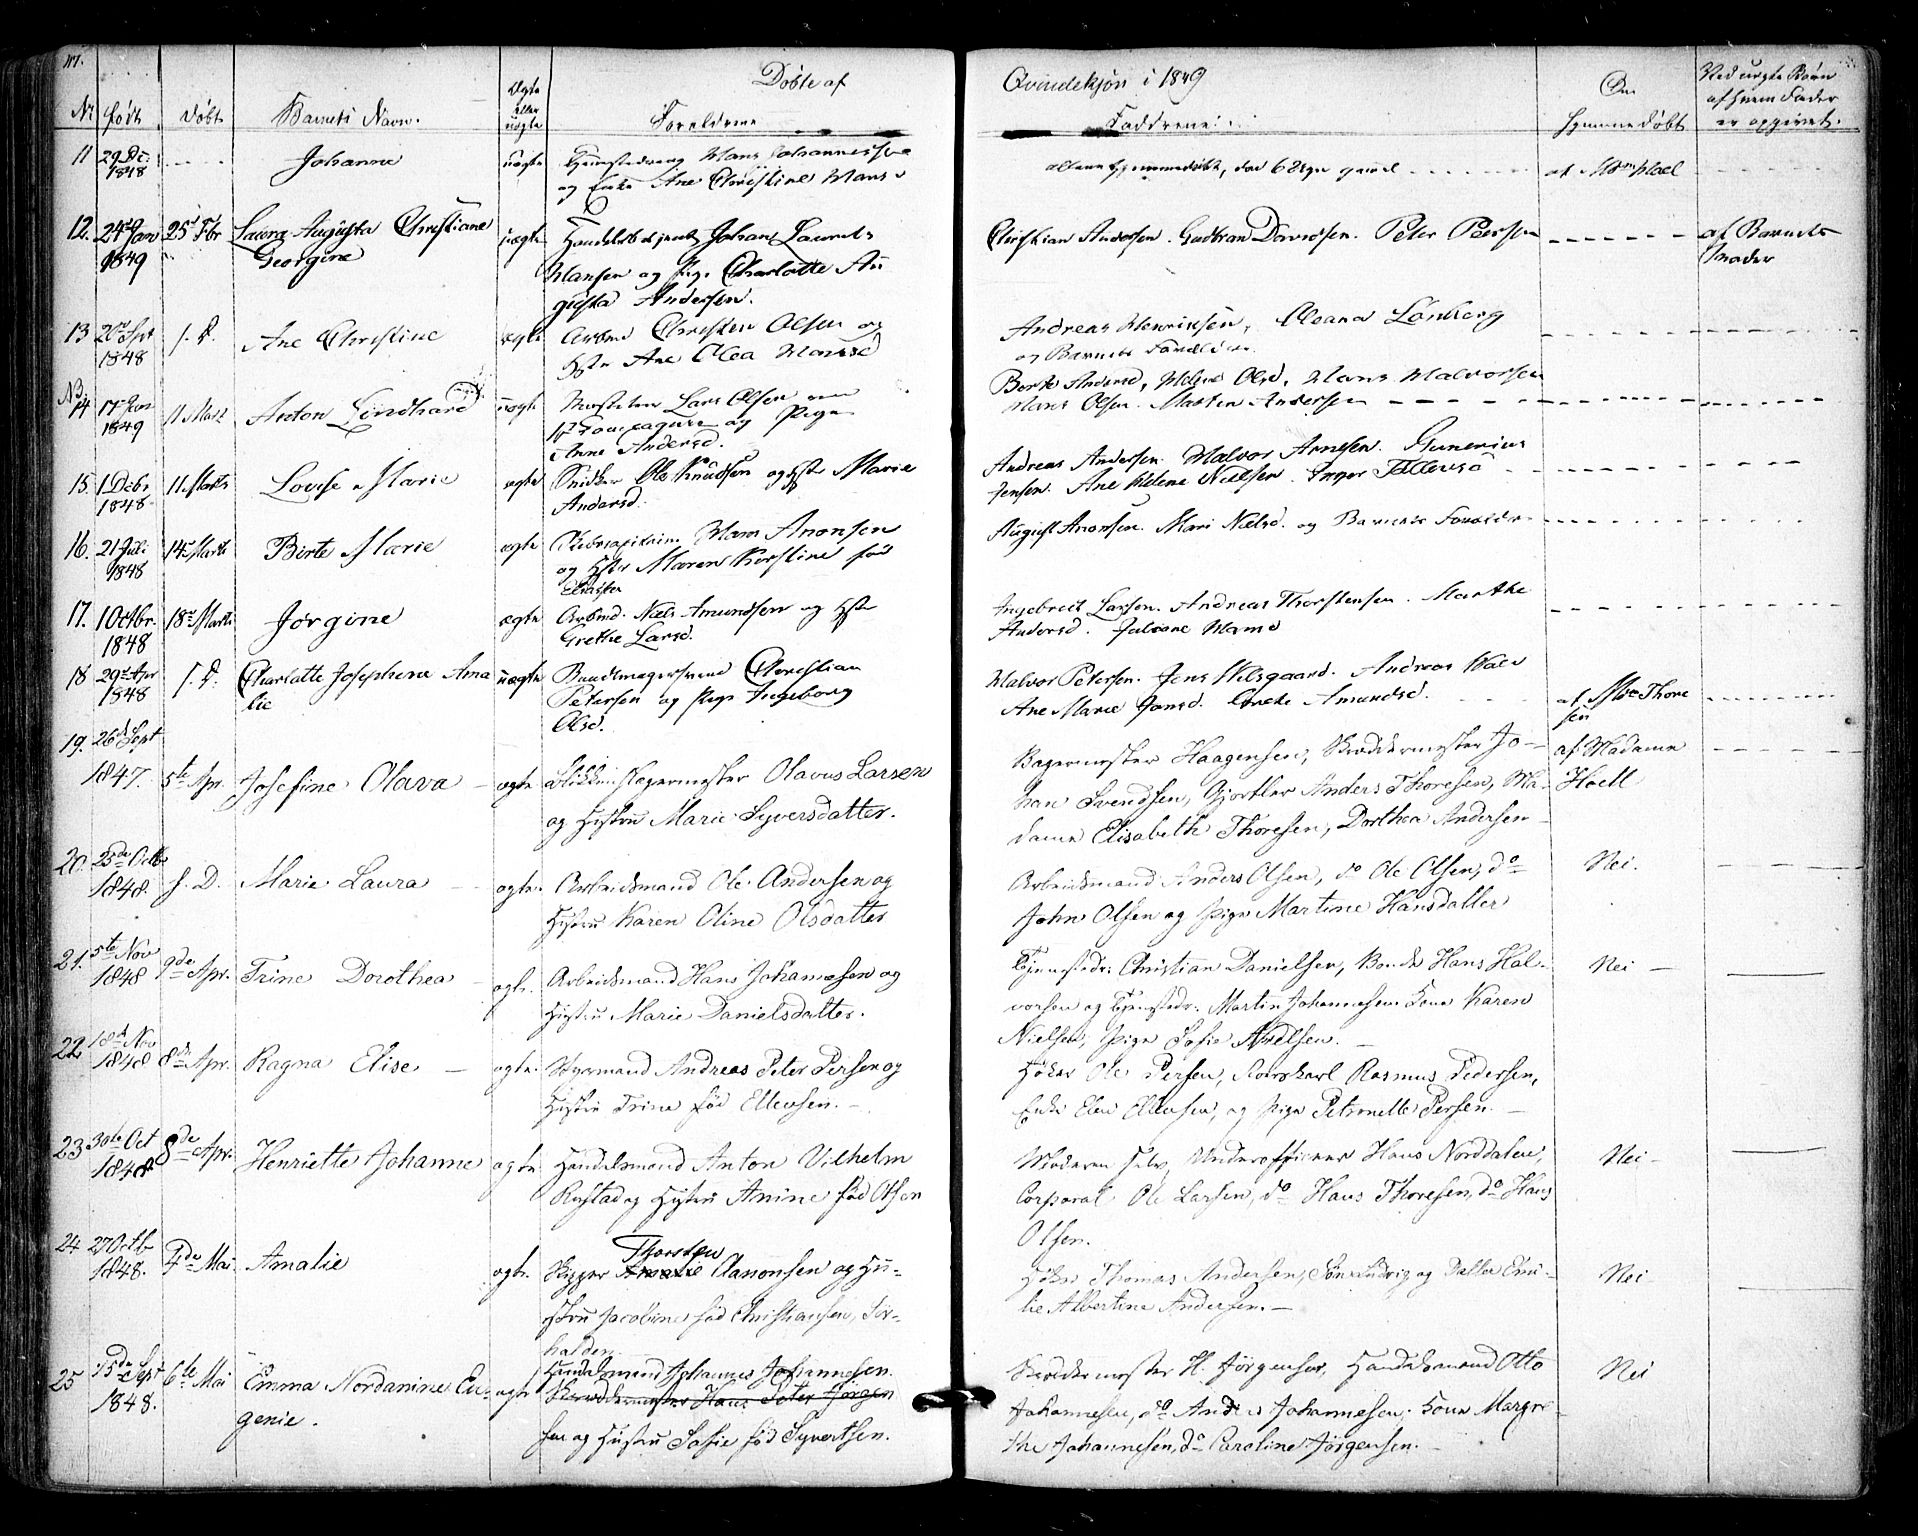 Døbte af Qvindekjøn i 1849
Nr født døbt Barnets Navn. Ægte eller uægte Foreldrene Faddrene Om hjemmedøbt Ved uægte Børn af hvem Fader er opgivet.
11 29 De. 1848 Johanne uægte Hans Johannessen
og Enke Ane Christine Hans
af Mdm Hoel
12. 24de Jan 1849 25de Fbr Laura Augusta Christiane
Georgine
uægte Johan Laurits
Hansen og Pige Charlotte Au
gusta Andersen.
Christian Andersen. Gudbran Davidsen. Peter Peersen
af Barnets
Moder
13 20de Spt 1848 s. D. Ane Christine
ægte Arbmd Christen Olsen og
Hstr Ane Olea Hansd
Andreas Henriksen, Oleana Lonberg
og Barnets Forældre.
NB 14 17de Jan 1849 11 Marts Anton Lindhard
uægte Lars Olsen
og Pige
Anne Andersd.
Berte Andersd, Helene Olsd, Hans Halvorsen
Hans Olsen. Martin Andersen
15. 1 Debr 1848 11 Marts Lovise Marie
ægte Snidker Ole Knudsen og Hstr Marie
Andersd.
Andreas Andersen. Halvor Arnesen. Gunerius
Jensen. Ane Helene Nielsen. Inger Tellevsd
16. 21 Juli 1848 14 Marts Birte Marie
ægte Hans Anonsen
og Hstr Maren Kirstine fød
Eliassen
August Anonsen. Mari Nielsd. og Barnets Forældre
17. 1 Octbr. 1848 18de Marts Jørgine
ægte Arbmd. Niels Amundsen og Hstr
Grethe Larsd.
Ingebreit Larsen. Andreas Thorstensen. Marthe
Andersd. Juliane Hansd
18 29de Apr 1848 s. D. Charlotte Josephine Ama
lie
uægte Buntmagersvend Christian
Petersen og Pige Ingeborg
Olsd.
Halvor Petersen. Jens Hilsgaard. Andreas
Ane Marie Jansd. Amundsd.
af Mdm Thore
sen
19. 26de Sept 1847. 5te Apr. Josefine Olava
ægte Blikkenslagermester Olavus Larsen
og Hustru Marie Syversdatter.
Bagermester Haagensen, Skreddermester Jo-
han Svendsen, Gjørtler Anders Thoresen, Ma-
dame Elisabeth Thoresen, Dorthea Andersen
af Madame
Hoell
20. 25de Octb 1848. s. D. Marie Laura
ægte. Arbeidsmand Ole Andersen og
Hustru Karen Oline Olsdatter
Arbeidsmand Anders Olsen, do Ole Olsen, do
John Olsen og Pige Martine Hansdatter
Nei.
21. 5te Nov 1848 9de Apr. Trine Dorothea
ægte. Arbeidsmand Hans Johannesen og
Hustru Marie Danielsdatter.
Tjenestedr: Christian Danielsen, Bonde Hans Hal-
vorsen og Tjenestedr: Martin Johannesen Kone Karen
Nielsen, Pige Sofie Nielsen.
Nei
22 18de Nov 1848 8de Apr. Ragna Elise
ægte. Styrmand Andreas Peter Persen og
Hustru Trine fød Ellensen.
Høker Ole Persen, Roerskarl Rasmus Pedersen,
Enke Elen Ellensen, og Pige Petronelle Persen.
23 30te Oct 1848 8de Apr. Henriette Johanne
ægte Handelsmand Anton Vilhelm
Rustad og Hustru Anine fød Olsen
Moderen selv, Underofficeer Hans Norddalen,
Corporal Ole Larsen, do Hans Thoresen, do Hans
Olsen.
Nei
24 27 Octb 1848. 4de Mai Amalie
Thorsten
ægte. Skipper Amalie Aanonsen og Hu-
stru Jacobine fød Christiansen,
Høker Thomas Andersen, Søn Ludvig og Datter Emi-
lie Albertine Andersen.
Nei
25 15de Sept 1848. 6te Mai Emma Nordanine Eu-
genie.
ægte Handelsmand Johannes Johannesen.
Skreddermester Hans Peter Jörgen
sen og Hustru Sofie fød Syvertsen.
Skreddermester H. Jørgensen, Handelsmand Otto
Johannesen, do Anders Johannesen, Kone Margre-
the Johannesen, do Caroline Jørgensen.
Nei